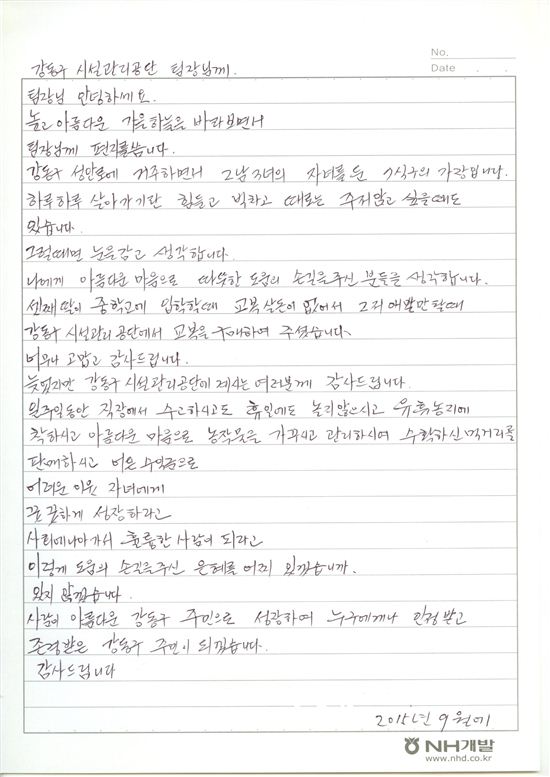 No.
Date . .
강동구 시설관리공단 팀장님께.
팀장님 안녕하세요.
높고 아름다운 가을하늘을 바라보면서
팀장님께 편지를 씁니다.
강동구 성안로에 거주하면서 2남 3녀의 자녀를 둔 7식구의 가장입니다.
하루하루 살아가기란 힘들고 벅차고 때로는 주저앉고 싶을때도
있습니다.
그럴때면 눈을감고 생각합니다.
나에게 아름다운 마음으로 따뜻한 도움의 손길을 주신 분들을 생각합니다.
셋째딸이 중학교에 입학할때 교복살돈이 없어서 그저 애만 탈때
강동구 시설관리공단에서 교복을 구매하여 주셨습니다.
너무나 고맙고 감사드립니다.
늦었지만 강동구 시설관리공단에 계시는 여러분께 감사드립니다.
일주일동안 직장에서 수고하시고도 휴일에도 놀지않으시고 유휴농지에
착하시고 아름다운 마음으로 농작물을 가꾸시고 관리하시여 수확하신 먹거리를
판매하시고 얻은 수익금으로
어려운 이웃 자녀에게
꿋꿋하게 성장하라고
사회에나아가서 훌륭한 사람이 되라고
이렇게 도움의 손길을주신 은혜를 어찌 잊겠습니까.
잊지 않겠습니다.
사람이 아름다운 강동구 주민으로 성장하여 누구에게나 인정받고
존경받은 강동구 주민이 되겠습니다.
감사드립니다
2015년 9월에
NH개발
www.nhd.co.kr